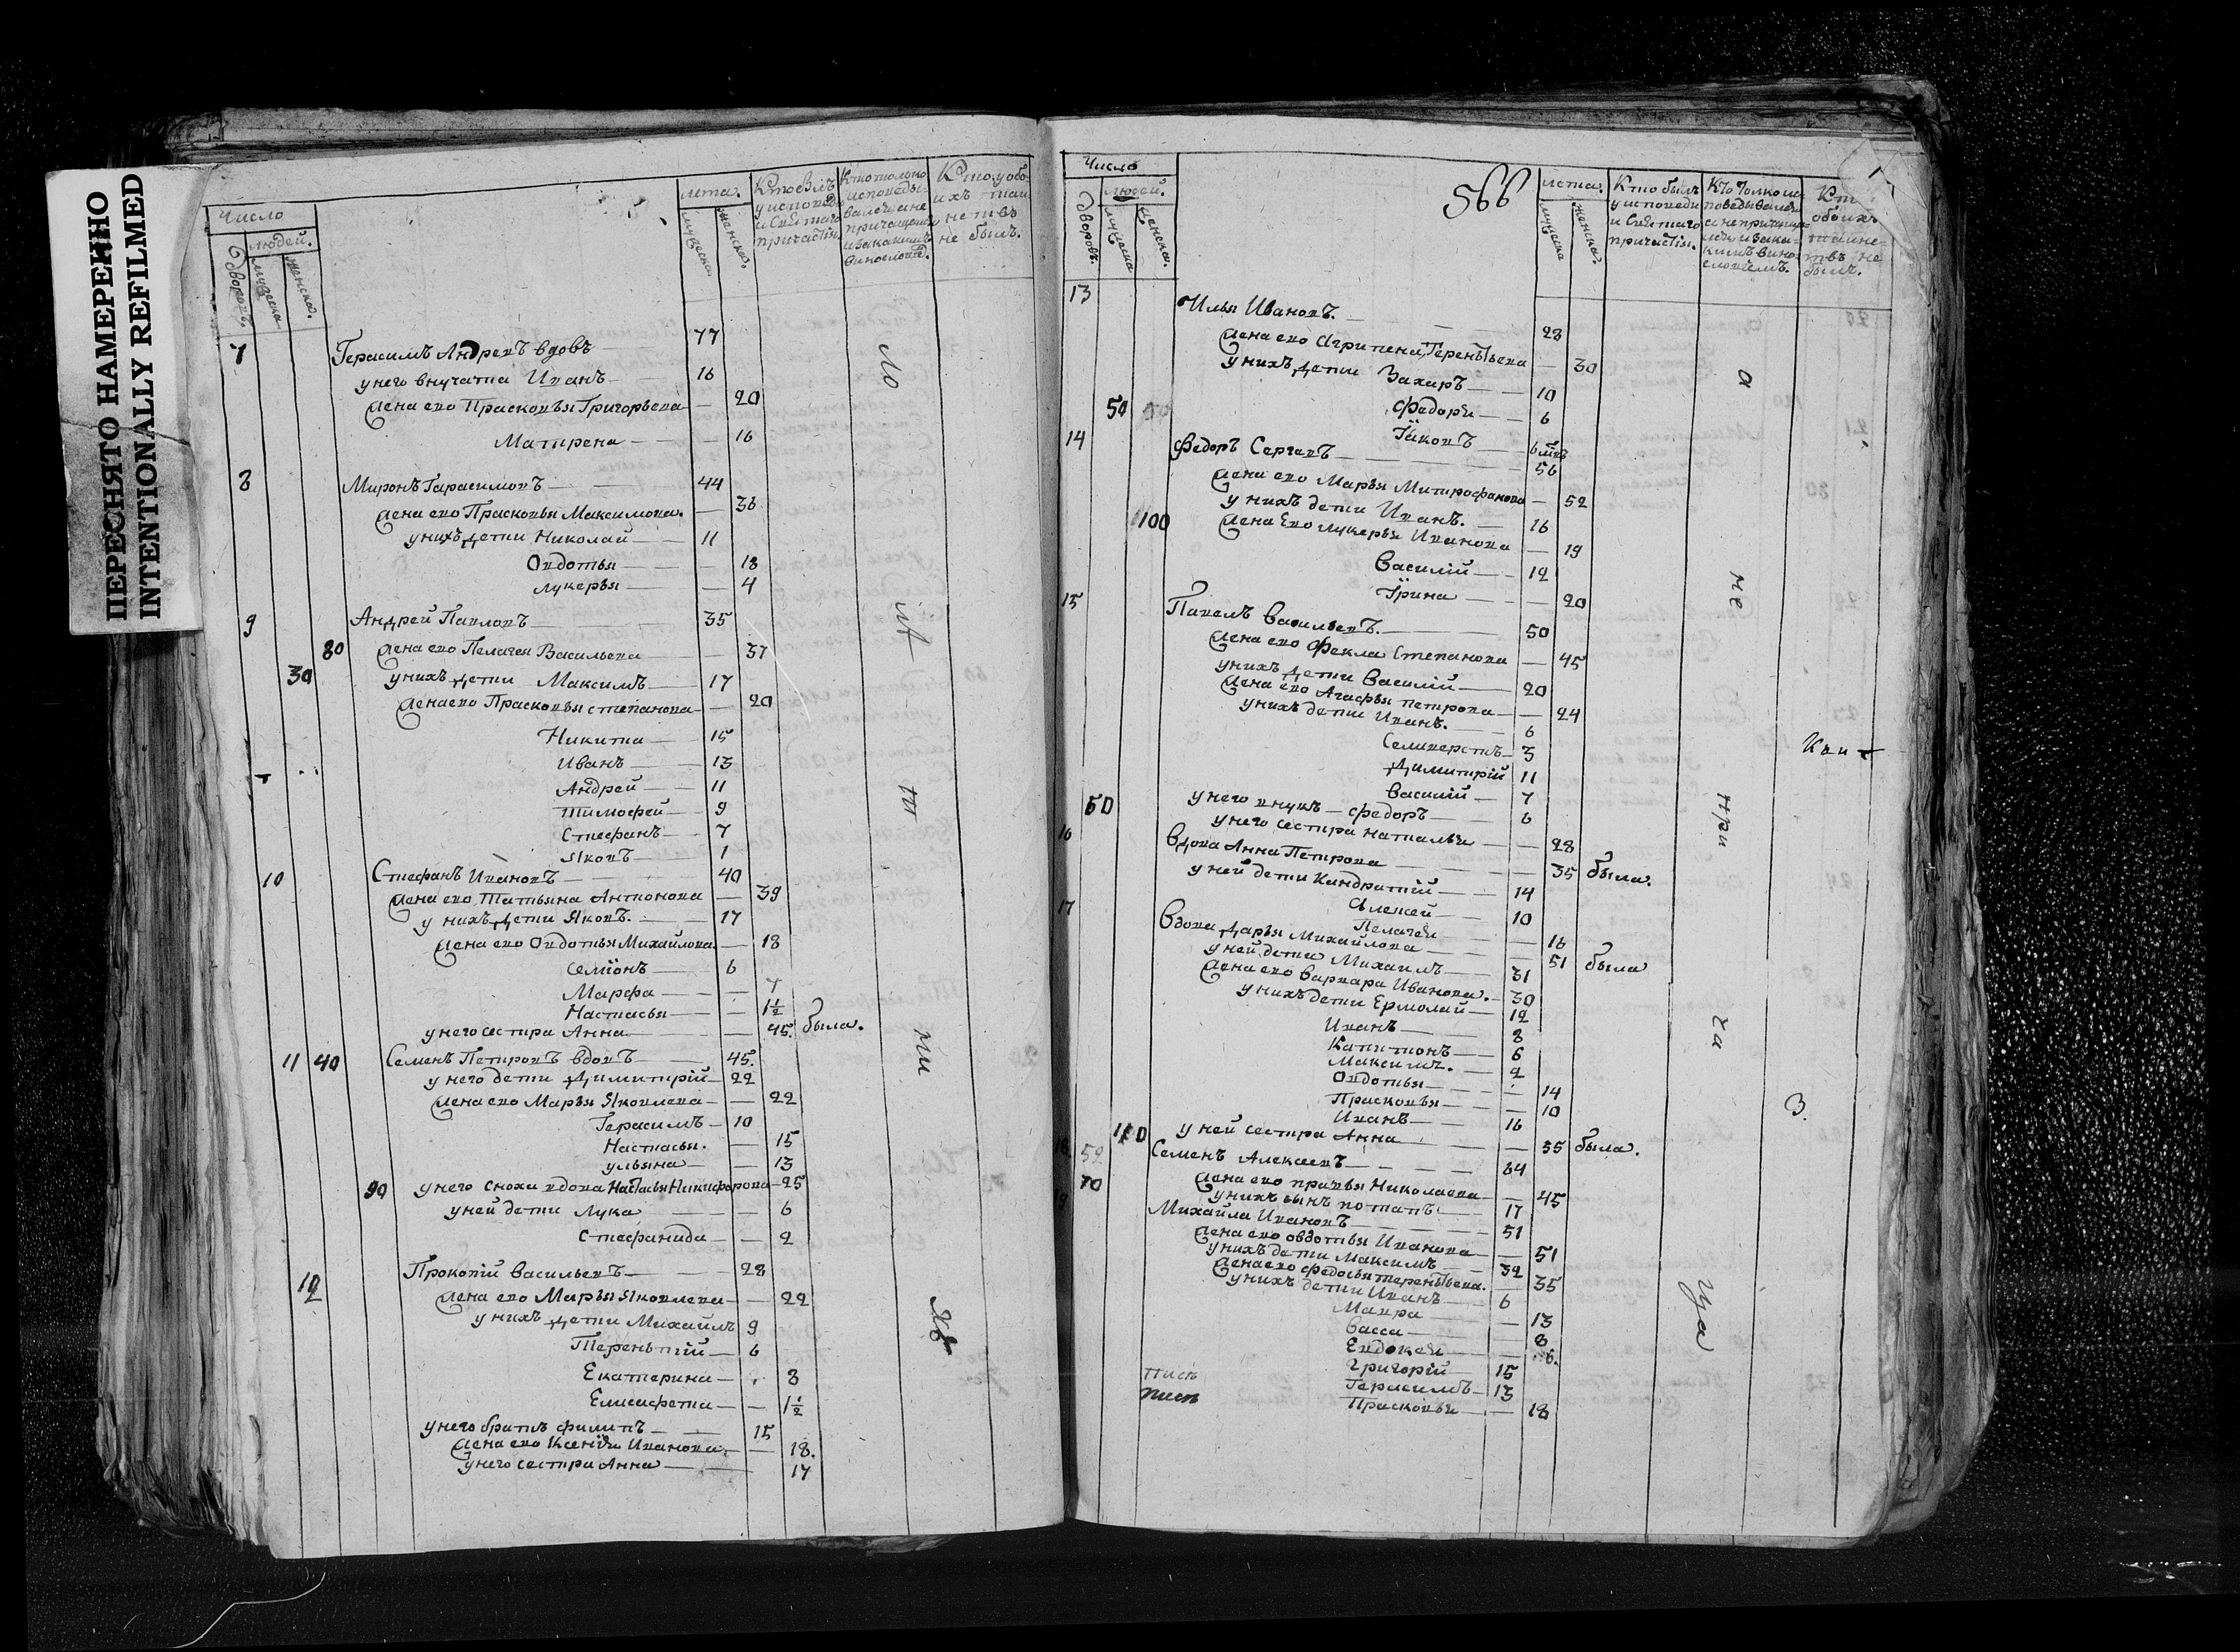 ПЕРЕСНЯТО НАМЕРЕННО
INTENTIONALLY REFILMED
Число
Дворовъ.
людей.
мужеска
женска.
лета.
мужеска.
женска.
Кто былъ
у исповеди
и Святаго
причастія.
Кто только
исповеды-
вался а не
причащался
и за какимъ
винословіе.
Кто у обо-
ихъ таи
нствъ
не былъ.
7 Герасимъ Андреевъ вдовъ 77
у него внучата Иванъ 16
жена ево Прасковья Григорьева 20
Матрена 16
8 Миронъ Гарасимовъ 44
жена ево Прасковья Максимова. 36
у нихъ дети Николай 11
Овдотья 18
Лукерья 4
9 Андрей Павловъ 35
80 жена ево Пелагея Васильева 37
30 у нихъ дети Максимъ 17
жена ево Прасковья Степанова 20
Никита 15
Иванъ 13
Андрей 11
Тимофей 9
Стефанъ 7
Яковъ 1
10 Стефанъ Ивановъ 40
жена ево Татьяна Антонова 39
у нихъ дети Яковъ. 17
жена ево Овдотья Михайлова 18
Семіонъ 6
Марфа 7
Настасья 1½
у него сестра Анна 45. была.
11 40 Семенъ Петровъ вдовъ 45.
у него дети Димитрій 22
жена ево Марья Яковлева 22
Герасимъ 10
Настасья. 15
Ульяна 13
90 у него сноха вдова Настасья Никифорова 25
у ней дети Лука 6
Стефанида 2
12 Прокопій Васильевъ 28
жена ево Марья Яковлева 22
у нихъ дети Михаилъ 9
Терентій 6
Екатерина 8
Елисафета 1½
у него братъ Филипъ 15
жена ево Ксенія Иванова. 18.
у него сестра Анна 17
566
Число
Дворовъ.
людей.
мужеска
женска.
лета.
мужеска
женска.
Кто былъ
у исповеди
и Святаго
причастія.
Кто толко ис
поведывался
а не причаща
лся и за ка-
кимъ вино-
словіемъ.
Кто
обоихъ
таинс-
твъ не
былъ.
13 Илья Ивановъ. 28
жена ево Агрипена Терентьева 30
у нихъ дети Захаръ 10
50 Федоръ 6
Іаковъ
14 Федоръ Сергеевъ 56
жена ево Марья Митрофанова 52
у нихъ дети Иванъ. 16
100 жена ево Лукерья Иванова 19
Василій 12
Ірина 20
15 Павелъ Васильевъ. 50
жена ево Фекла Степанова 45
у нихъ дети Василій 20
жена ево Агафья Петрова 24
у нихъ дети Иванъ. 6
Селиверстъ 3
Димитрій 11
Василій 7
60 у него внукъ Федоръ 6
у него сестра Наталья 28
16 вдова Анна Петрова 35 была.
у ней дети Кандратій 14
Алексей 10
Пелагея 16
17 Вдова Дарья Михайлова 51 была
у ней дети Михаилъ 31
жена ево Варвара Иванова. 30
у нихъ дети Ермолай 12
Иванъ 8
Капитонъ 6
Максимъ. 2
Овдотья 14
Прасковья 10
Иванъ 16
110 у ней сестра Анна 35 была.
18 Семенъ Алексеевъ 64
70 жена ево Николаева 45
у нихъ сынъ Потапъ 17
19 Михайла Ивановъ 51
жена ево Овдотья Иванова 51
у нихъ дети Максимъ 32
жена ево Федосья Терентьева. 35
у нихъ дети Иванъ 6
Мавра 13
Васса 8
Евдокея 6.
Григорій 15
Герасимъ 13
Прасковья 18